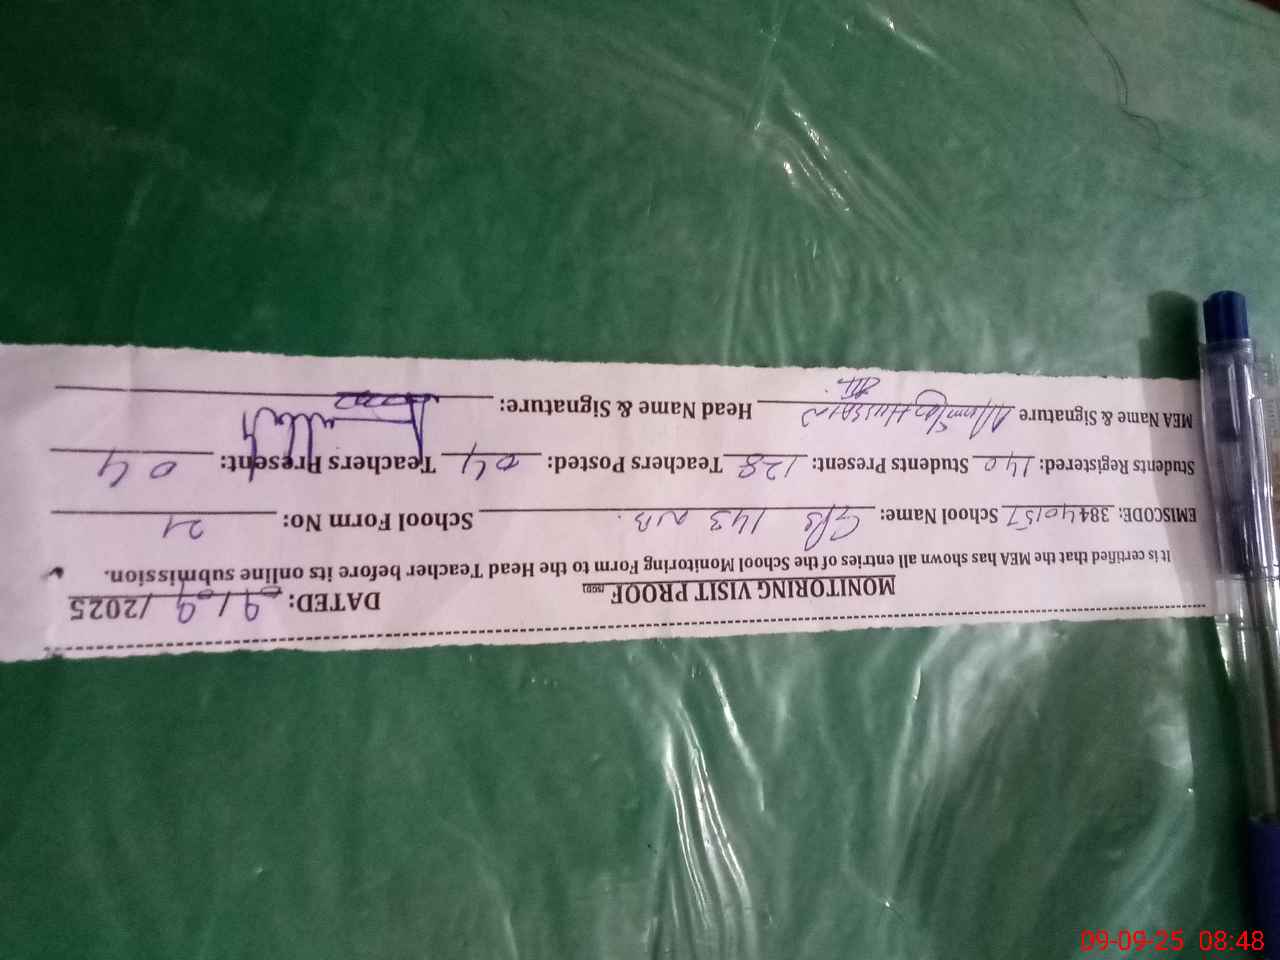 MONITORING VISIT PROOF DATED: 9/09/2025
It is certified that the MEA has shown all entries of the School Monitoring Form to the Head Teacher before its online submission.
EMISCODE: 38440157 School Name: GPS 143 N.B. School Form No: 21
Students Registered: 140 Students Present: 128 Teachers Posted: 04 Teachers Present: 04
MEA Name & Signature Hussain Head Name & Signature:
09-09-25 08:48